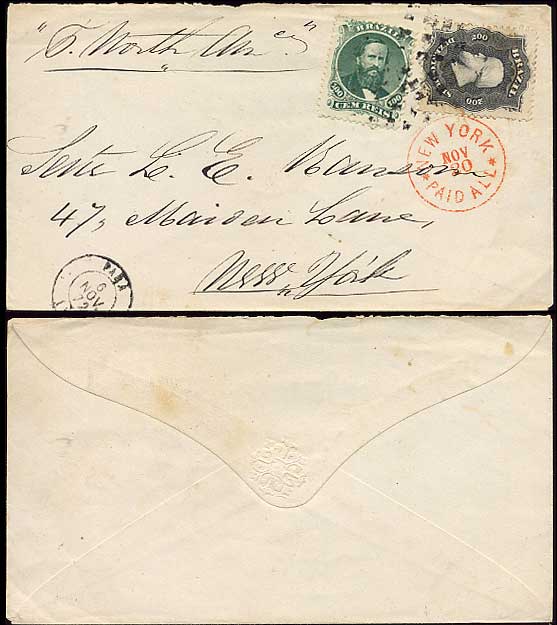 "S. North Am
BRAZIL
100 100
CEM REIS
BRAZIL
200
200
NEW YORK
NOV
20
PAID ALL
L. E. Ransom
47, Maiden Lane,
New York
PARA
6
NOV